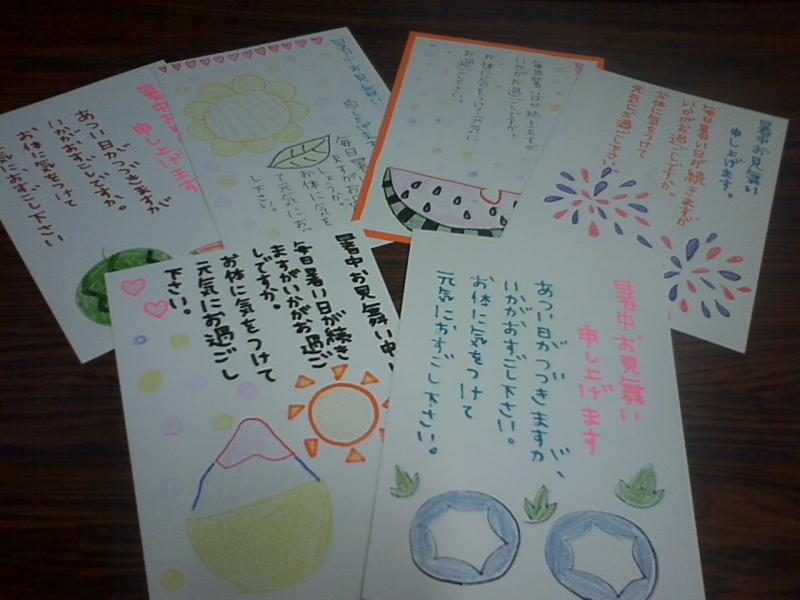 暑中お
申し上げます
あつい日がつづきますが
いかがおすごしですか。
お体に気をつけて
元気におすごし下さい
暑中お見舞い
申し上げます
毎日暑い日が
しょうか。
お体に気を
元気に
し下さい。
毎日暑い日が続きますが
いかがお過ごしですか。
お体に気をつけて元気に
お過ごし下さい。
暑中お見舞い
申し上げます。
毎日暑い日が続きますが
いかがお過ごしですか。
お体に気をつけて
元気にお過ごし下さい。
暑中お見舞い申し
毎日暑い日が続き
ますがいかがお過ご
しですか。
お体に気をつけて
元気にお過ごし
下さい。
暑中お見舞い
申し上げます
あつい日がつづきますが、
いかがおすごし下さい。
お体に気をつけて
元気におすごし下さい。